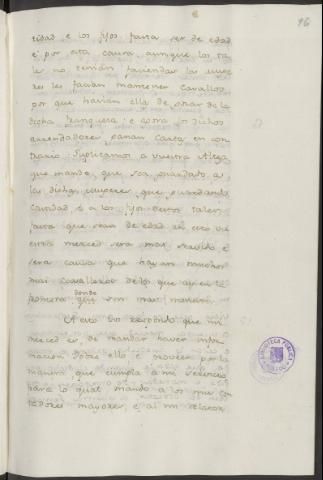 16
tidad e los fijos fasta ser de edad
e por esta causa aunque los ta
les no tenian faciendas las muge
res les facian mantener cavallos
por que havian ellas de gozar de la
dicha franqueza: e agora los dichos
arrendadores ganan cartas en con
trario. Suplicamos a vuestra Alteza
que mande, que sea guardado a
las dichas mugeres, que guardando
castidad, e a los fijos destos tales
fasta que sean de edad, en esto vu
estra merced sera mas servido e
sera causa que hayan muchos
mas cavalleros de los que ay en la
frontera donde son mas menester.
A esto vos respondo que mi
merced es, de mandar haver infor
macion sobre ello e proveer por la
manera que cumpla a mi servicio
para lo qual mando a los mis con
tadores mayores, e al mi relator
BIBLIOTECA PUBLICA
TOLEDO